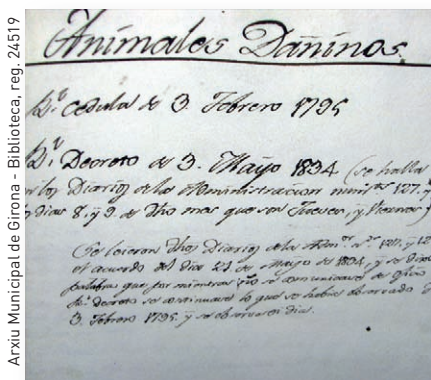 Arxiu Municipal de Girona - Biblioteca, reg. 24519
Animales Dañinos.
Rl. cedula de 3. Febrero 1795
Rl. Decreto de 3. Mayo 1834 (se halla
los Diarios de la Administracion num.os 127. y
dias 8. y 9. de dho mes que son Jueves, y Viernes)
Se leieron dhos Diarios de la Adm.on n.os 127. y 12
el acuerdo del dia 21 de Mayo de 1834, y se
palabra que por mientras no se comunicase de oficio
Rl. decreto se continuase lo que se habia observado
3. Febrero 1795. y se observa en dia.